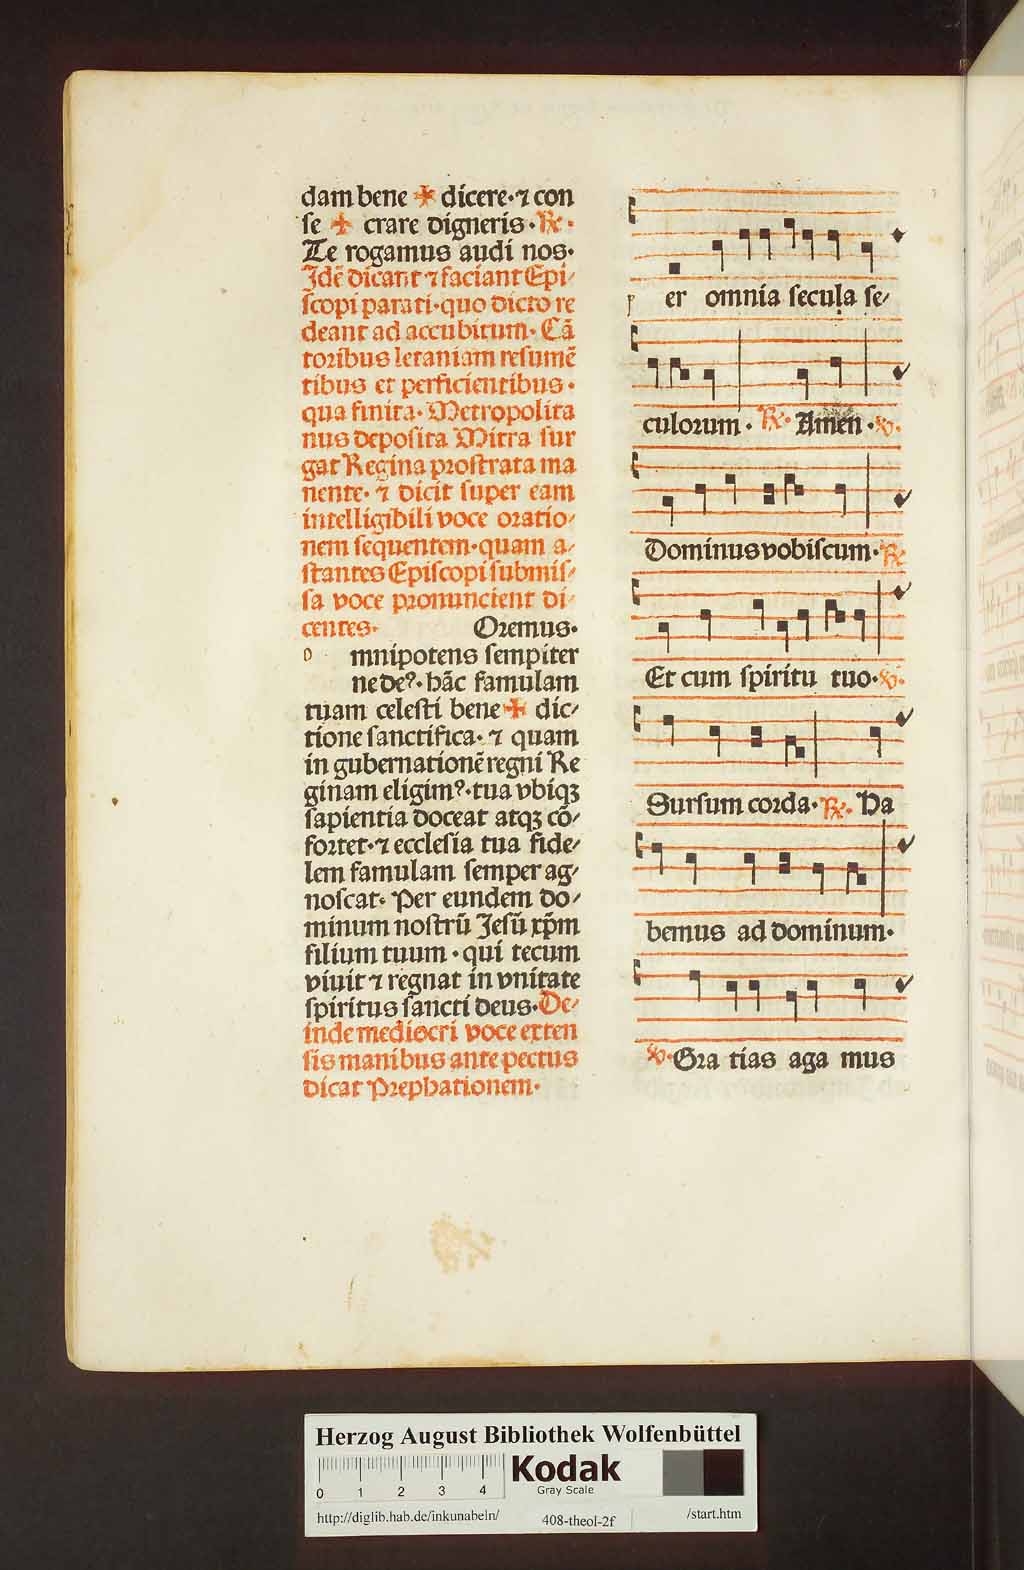 dam bene ✠ dicere·⁊ con
se ✠ crare digneris·℟·
Te rogamus audi nos·
Jdē dicant ⁊ faciant Epi⸗
scopi parati·quo dicto re
deant ad accubitum· Cā
toribus letaniam resumē
tibus et perficientibus·
qua finita· Metropolita
nus deposita Mitra sur
gat Regina prostrata ma
nente· ⁊ dicit super eam
intelligibili voce oratio⸗
nem sequentem·quam a⸗
stantes Episcopi submis⸗
sa voce pronuncient di⸗
centes· Oremus·
o mnipotens sempiter
ne deꝰ·hāc famulam
tuam celesti bene ✠ dic⸗
tione sanctifica· ⁊ quam
in gubernationē regni Re
ginam eligimꝰ·tua vbiqꝫ
sapientia doceat atqꝫ cō⸗
fortet·⁊ ecclesia tua fide⸗
lem famulam semper ag⸗
noscat· Per eundem do⸗
minum nostrū Jesū xp̄m
filium tuum·qui tecum
viuit ⁊ regnat in vnitate
spiritus sancti deus·De⸗
inde mediocri voce exten
sis manibus ante pectus
dicat Prephationem·
p er omnia secula se⸗
culorum·℟·Amen·℣·
Dominus vobiscum·℟
Et cum spiritu tuo·℣·
Sursum corda·℟·Ha
bemus ad dominum·
℣·Gra tias aga mus
Herzog August Bibliothek Wolfenbüttel
0 1 2 3 4
Kodak
Gray Scale
http://diglib.hab.de/inkunabeln/ 408-theol-2f /start.htm